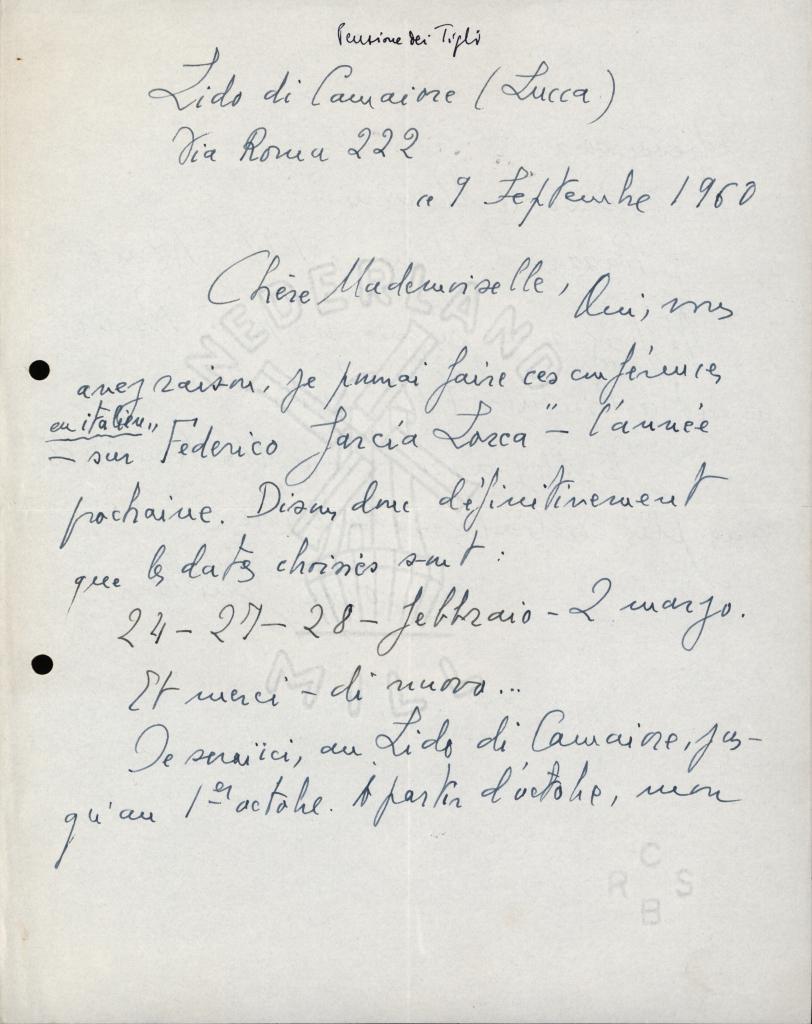 Pensione dei Tigli
Lido di Camaiore (Lucca)
Via Roma 222
ce 9 Septembre 1960
Chère Mademoiselle,
Oui, vous
avez raison, je pourrai faire ces conférences
en italien,,
– sur Federico García Lorca" – l'année
prochaine. Disons donc définitivement
que les dates choisies sont :
24 – 27 – 28 – febbraio – 2 marzo.
Et merci – di nuovo...
Je serai ici, au Lido di Camaiore, jus–
qu'au 1er octobre. A partir d'octobre, mon
NEDERLAND
MILL
C
R S
B